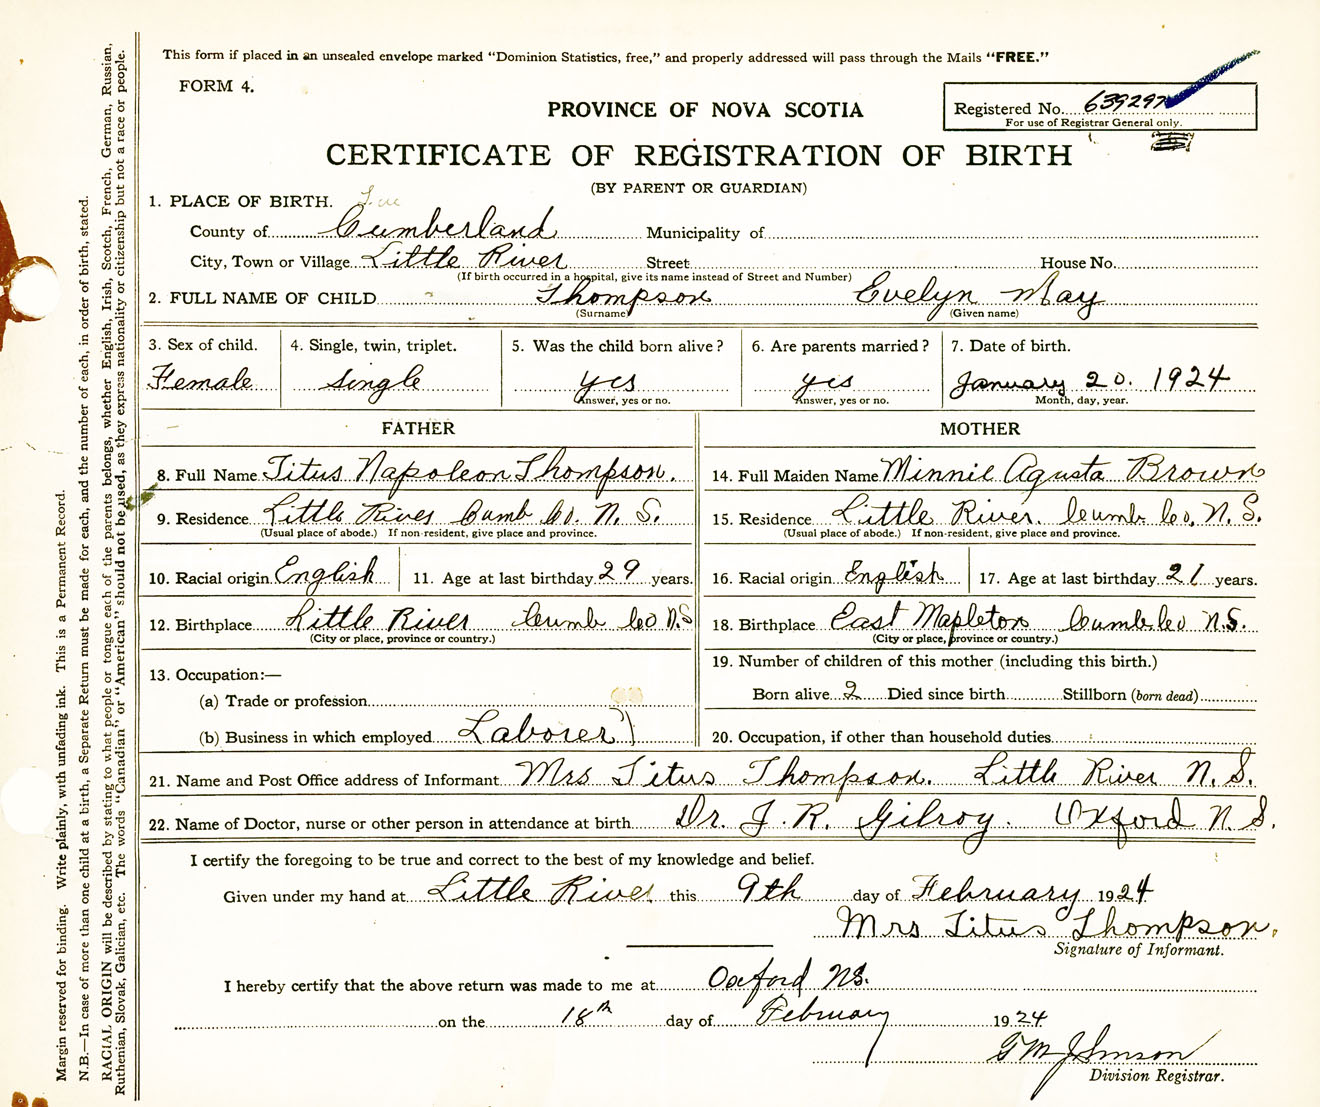 This form if placed in an unsealed envelope marked "Dominion Statistics, free," and properly addressed will pass through the Mails "FREE."
FORM 4.
PROVINCE OF NOVA SCOTIA
Registered No. 639297
For use of Registrar General only.
CERTIFICATE OF REGISTRATION OF BIRTH
(BY PARENT OR GUARDIAN)
1. PLACE OF BIRTH.
County of Cumberland Municipality of
City, Town or Village Little River Street House No.
(If birth occurred in a hospital, give its name instead of Street and Number)
2. FULL NAME OF CHILD Thompson Evelyn May
(Surname) (Given name)
3. Sex of child. 4. Single, twin, triplet. 5. Was the child born alive? 6. Are parents married? 7. Date of birth.
Female single yes yes January 20. 1924
Answer, yes or no. Answer, yes or no. Month, day, year.
FATHER MOTHER
8. Full Name Titus Napoleon Thompson. 14. Full Maiden Name Minnie Agusta Brown
9. Residence Little River Cumb Co. N. S. 15. Residence Little River. Cumb. Co. N. S.
(Usual place of abode.) If non-resident, give place and province. (Usual place of abode.) If non-resident, give place and province.
10. Racial origin English 11. Age at last birthday 29 years. 16. Racial origin English 17. Age at last birthday 21 years.
12. Birthplace Little River Cumb Co N.S 18. Birthplace East Mapleton Cumb. Co N.S.
(City or place, province or country.) (City or place, province or country.)
13. Occupation:— 19. Number of children of this mother (including this birth.)
(a) Trade or profession Born alive 2 Died since birth Stillborn (born dead)
(b) Business in which employed Laborer 20. Occupation, if other than household duties
21. Name and Post Office address of Informant Mrs Titus Thompson. Little River N. S.
22. Name of Doctor, nurse or other person in attendance at birth Dr. J. R. Gilroy. Oxford N. S.
I certify the foregoing to be true and correct to the best of my knowledge and belief.
Given under my hand at Little River this 9th day of February 1924
Mrs Titus Thompson.
Signature of Informant.
I hereby certify that the above return was made to me at Oxford NS.
on the 18th day of February 1924
Johnson
Division Registrar.
Margin reserved for binding. Write plainly, with unfading ink. This is a Permanent Record.
N.B.—In case of more than one child at a birth, a Separate Return must be made for each, and the number of each, in order of birth, stated.
RACIAL ORIGIN will be described by stating to what people or tongue each of the parents belongs, whether English, Irish, Scotch, French, German, Russian,
Ruthenian, Slovak, Galician, etc. The words "Canadian" or "American" should not be used, as they express nationality or citizenship but not a race or people.